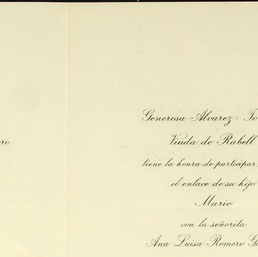 ro
Generosa Alvarez To
Viuda de Rabell
tiene la honra de participar
el enlace de su hijo
Mario
con la señorita
Ana Luisa Romero G